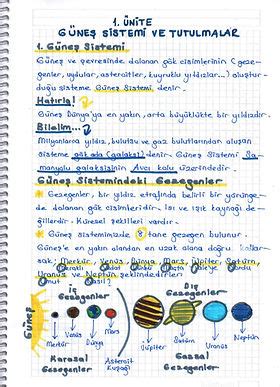 1. ÜNİTE
GÜNEŞ SİSTEMİ VE TUTULMALAR
1. Güneş Sistemi
Güneş ve çevresinde dolanan gök cisimlerinin (geze-
genler, uydular, asteroitler, kuyruklu yıldızlar...) oluştur-
duğu sisteme Güneş Sistemi denir.
Hatırla!
Güneş Dünya'ya en yakın, orta büyüklükte bir yıldızdır.
Bilelim...
Milyonlarca yıldız, bulutsu ve gaz bulutlarından oluşan
sisteme gök ada (galaksi) denir. Güneş Sistemi Sa-
manyolu galaksisinin Avcı kolu üzerindedir.
Güneş Sistemindeki Gezegenler
Gezegenler, bir yıldız etrafında belirli bir yörünge-
de dolanan gök cisimleridir. Isı ve ışık kaynağı de-
ğillerdir. Küresel şekilleri vardır.
Güneş sisteminizde 8 tane gezegen bulunur.
Güneş'e en yakın olandan en uzak olana doğru
sak; Merkür, Venüs, Dünya, Mars, Jüpiter, Satürn,
Uranüs ve Neptün şeklindedirler
Güneş
İç Gezegenler
Dış Gezegenler
Merkür
Venüs
Dünya
Mars
Jüpiter
Satürn
Uranüs
Neptün
Karasal Gezegenler
Asteroit Kuşağı
Gazsal Gezegenler